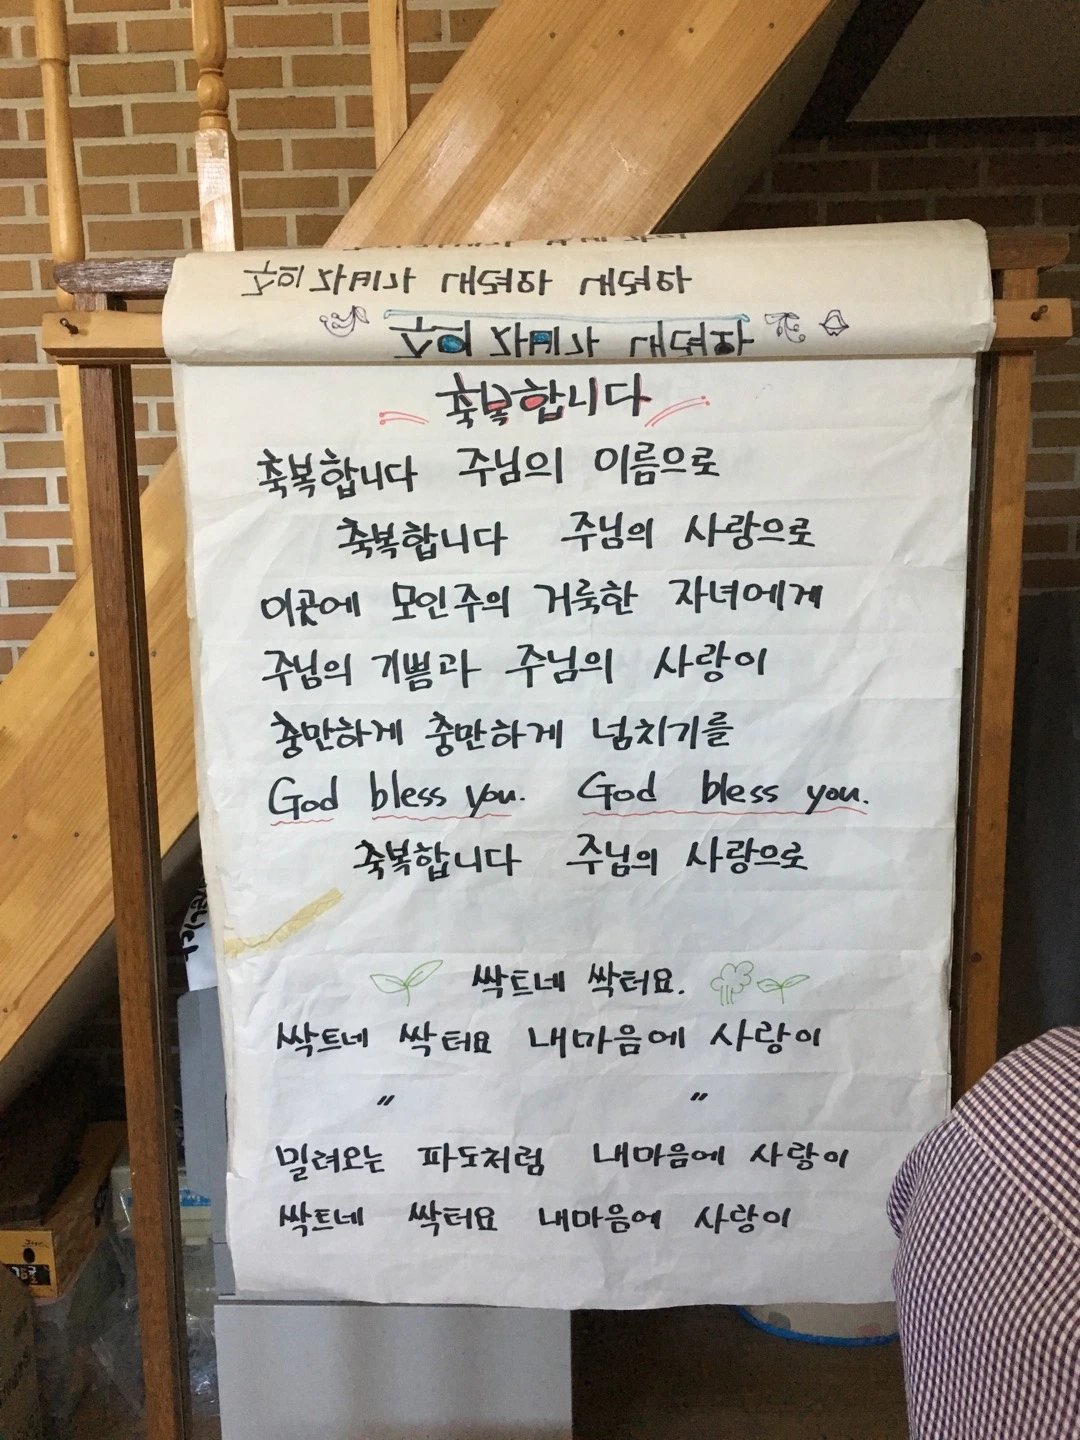 축복합니다
축복합니다 주님의 이름으로
축복합니다 주님의 사랑으로
이곳에 모인주의 거룩한 자녀에게
주님의 기쁨과 주님의 사랑이
충만하게 충만하게 넘치기를
God bless you. God bless you.
축복합니다 주님의 사랑으로
싹트네 싹터요.
싹트네 싹터요 내마음에 사랑이
〃 〃
밀려오는 파도처럼 내마음에 사랑이
싹트네 싹터요 내마음에 사랑이